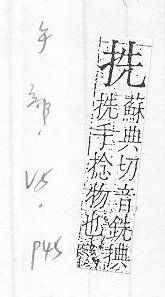 㧥
蘇典切音銑捵
㧥手捻物也
手部. V5. P45